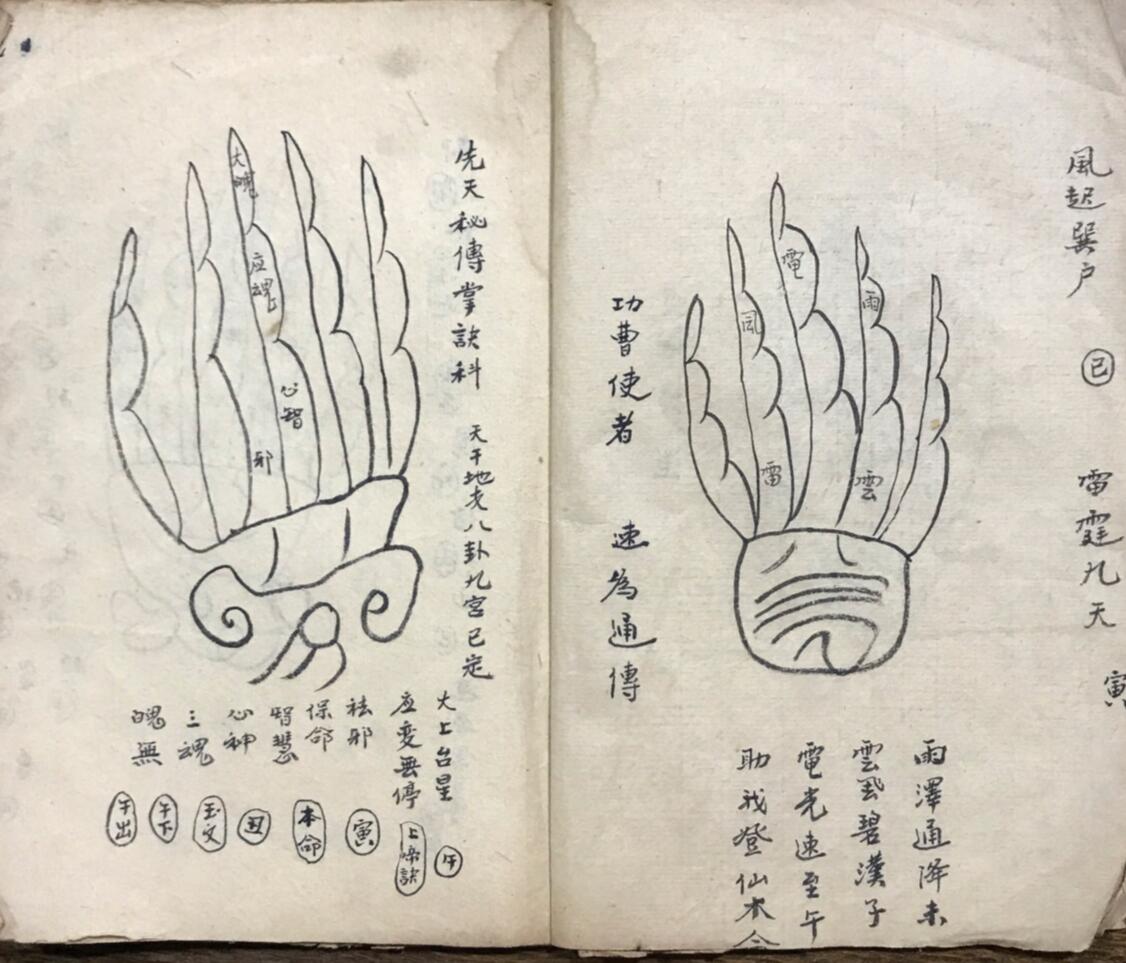 風起巽户
巳
雷霆九天
寅
雨
電
風
雲
雷
功曹使者
速為通傳
雨澤通降未
雲風碧漢子
電光速至午
助我登仙本
先天秘傳掌訣科
天干地支八卦九宮已定
大魄
应魂
心智
邪
大上台星
午
应变無停
上帝訣
祛邪
寅
保命
本命
智慧
丑
心神
玉文
三魂
午下
魄無
午出